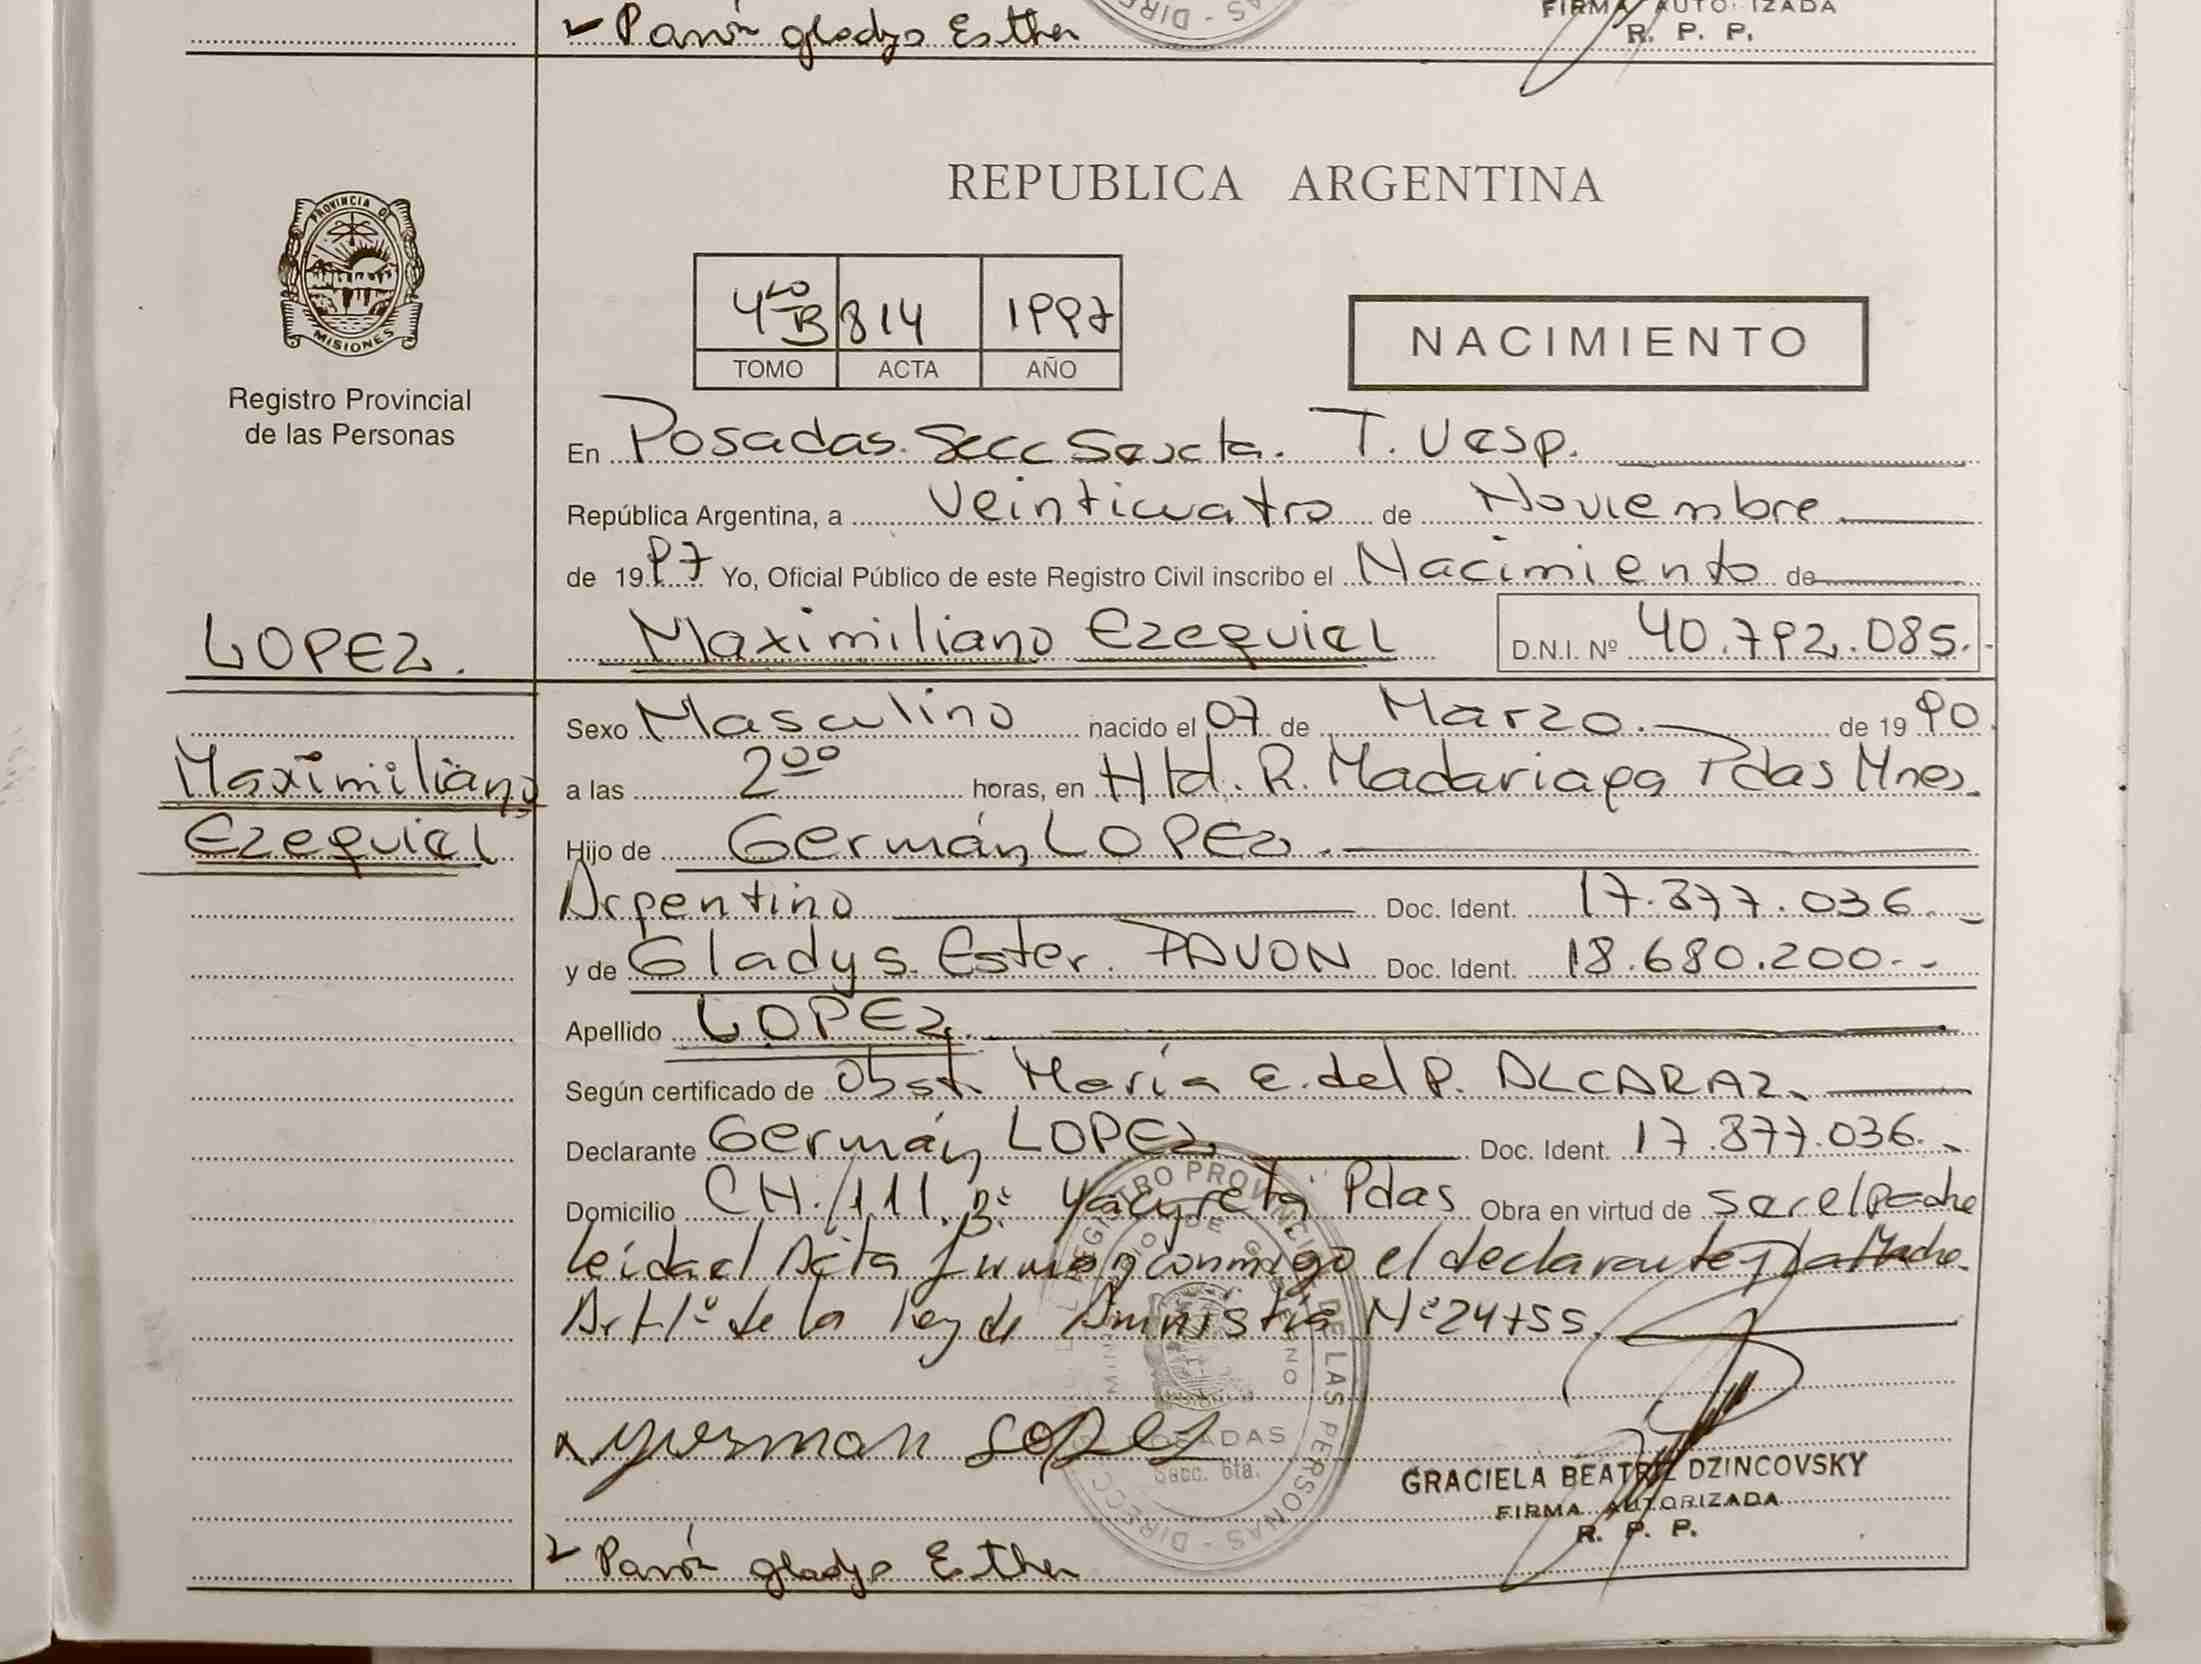 Pavón gladys Esther
FIRMA AUTORIZADA
R. P. P.
PROVINCIA DE
MISIONES
Registro Provincial
de las Personas
REPUBLICA ARGENTINA
4to B 814 1997
TOMO ACTA AÑO
NACIMIENTO
En Posadas. Secc Sexta. T. Vesp.
República Argentina, a Veinticuatro de Noviembre
de 1997 Yo, Oficial Público de este Registro Civil inscribo el Nacimiento de
LOPEZ.
Maximiliano Ezequiel D.N.I. Nº 40.792.085.-
Sexo Masculino nacido el 07 de Marzo. de 1990.
Maximiliano
a las 2⁰⁰ horas, en Htd. R. Madariaga Pdas Mnes.
Ezequiel
Hijo de Germán LOPEZ.
Argentino Doc. Ident. 17.377.036.-
y de Gladys Ester PAVON Doc. Ident. 18.680.200.-
Apellido LOPEZ.
Según certificado de Obst. María E. del P. ALCARAZ.
Declarante Germán LOPEZ Doc. Ident. 17.377.036.-
Domicilio CH. 111. Bº Yacyreta Pdas Obra en virtud de ser el padre
leida el Acta firman conmigo el declarante y la Madre.
Art 1º de la Ley de Amnistía Nº 24755.
REGISTRO PROVINCIAL DE LAS PERSONAS
POSADAS
Secc. 6ta.
x german Lopez
GRACIELA BEATRIZ DZINCOVSKY
FIRMA AUTORIZADA
R. P. P.
Pavón gladys Esther